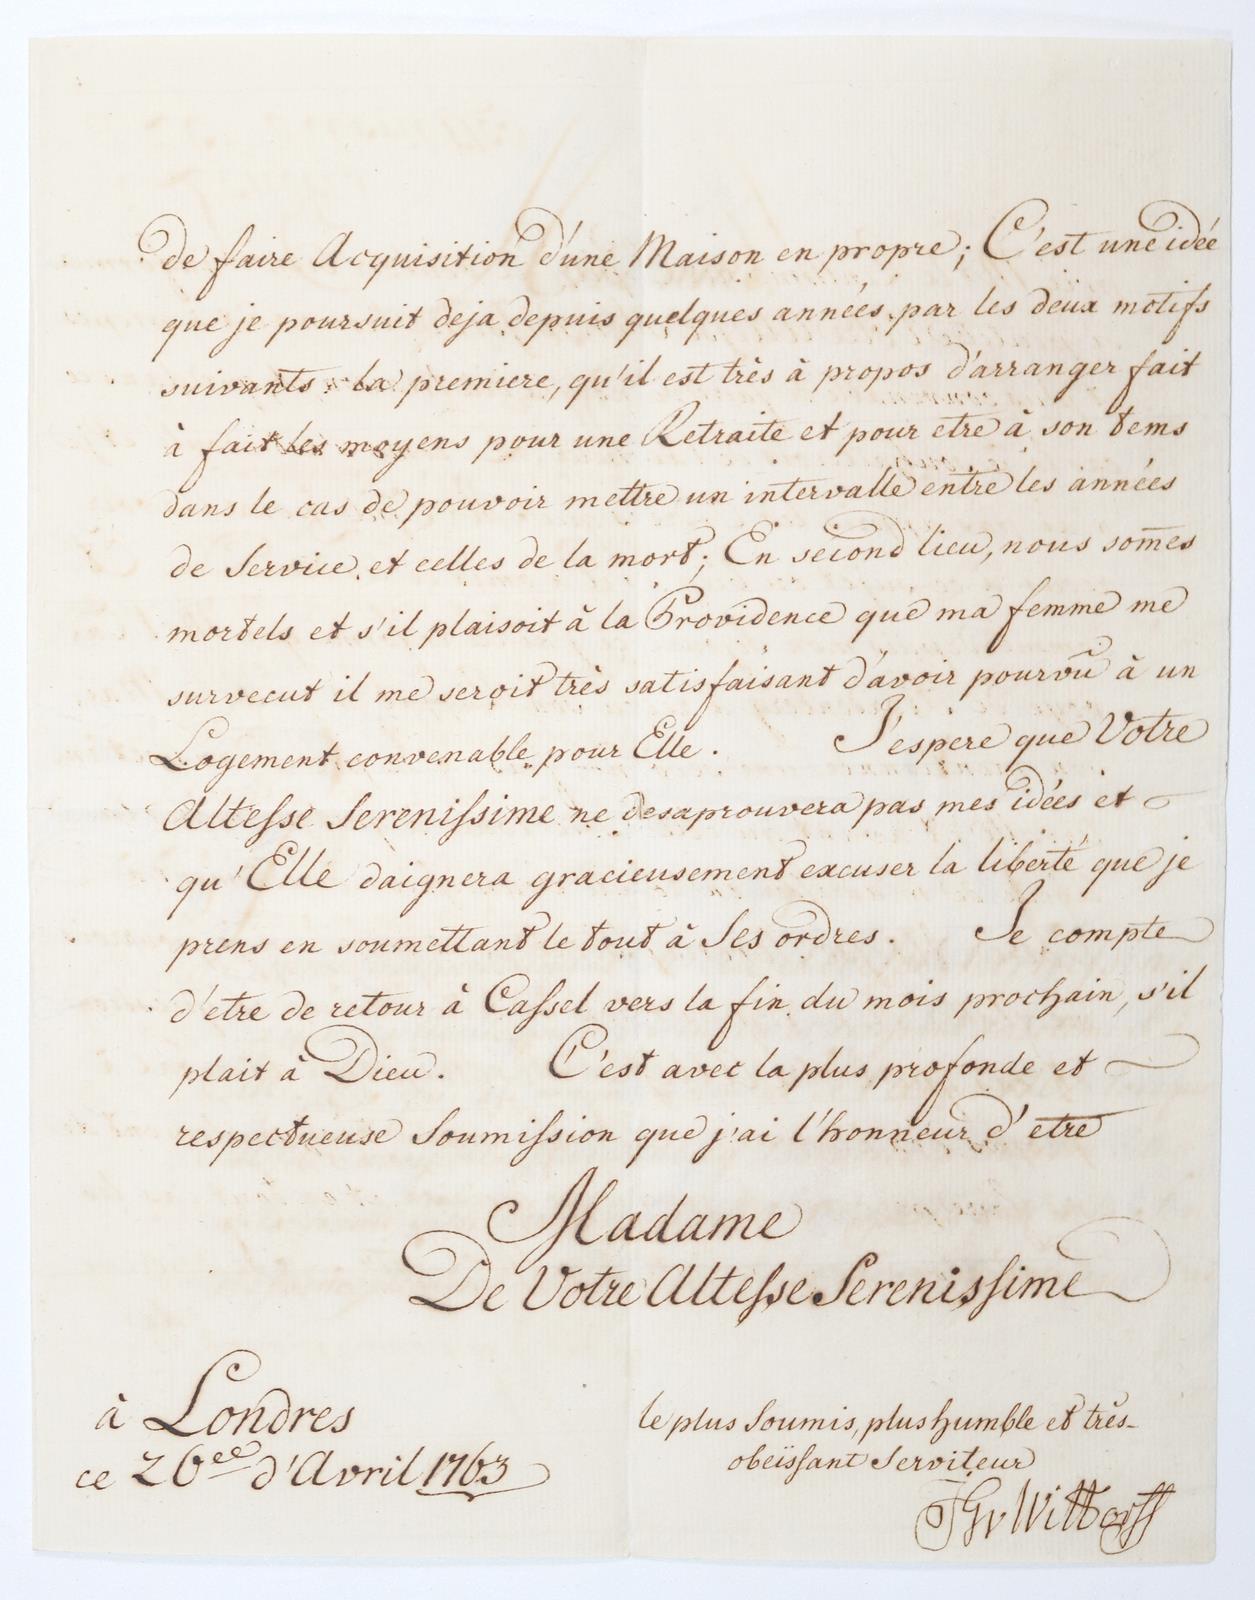 de faire Acquisition d'une Maison en propre; C'est une idée
que je poursuit deja depuis quelques années par les deux motifs
suivants: la premiere, qu'il est très à propos d'arranger fait
à fait les moyens pour une Retraite et pour etre à son tems
dans le cas de pouvoir mettre un intervalle entre les années
de Service et celles de la mort; En second lieu, nous som̅es
mortels et s'il plaisoit à la Providence que ma femme me
survecut il me seroit très satisfaisant d'avoir pourvû à un
Logement convenable pour Elle. J'espere que Votre
Altesse Serenissime ne desaprouvera pas mes idées et
qu'Elle daignera gracieusement excuser la liberté que je
prens en soumettant le tout à Ses ordres. Je compte
d'etre de retour à Cassel vers la fin du mois prochain, s'il
plait à Dieu. C'est avec la plus profonde et
respectueuse Soumission que j'ai l'honneur d'etre
Madame
De Votre Altesse Serenissime
à Londres
ce 26ee d'Avril 1763
le plus Soumis, plus humble et très-
obeïssant Serviteur
JGv Wittorff